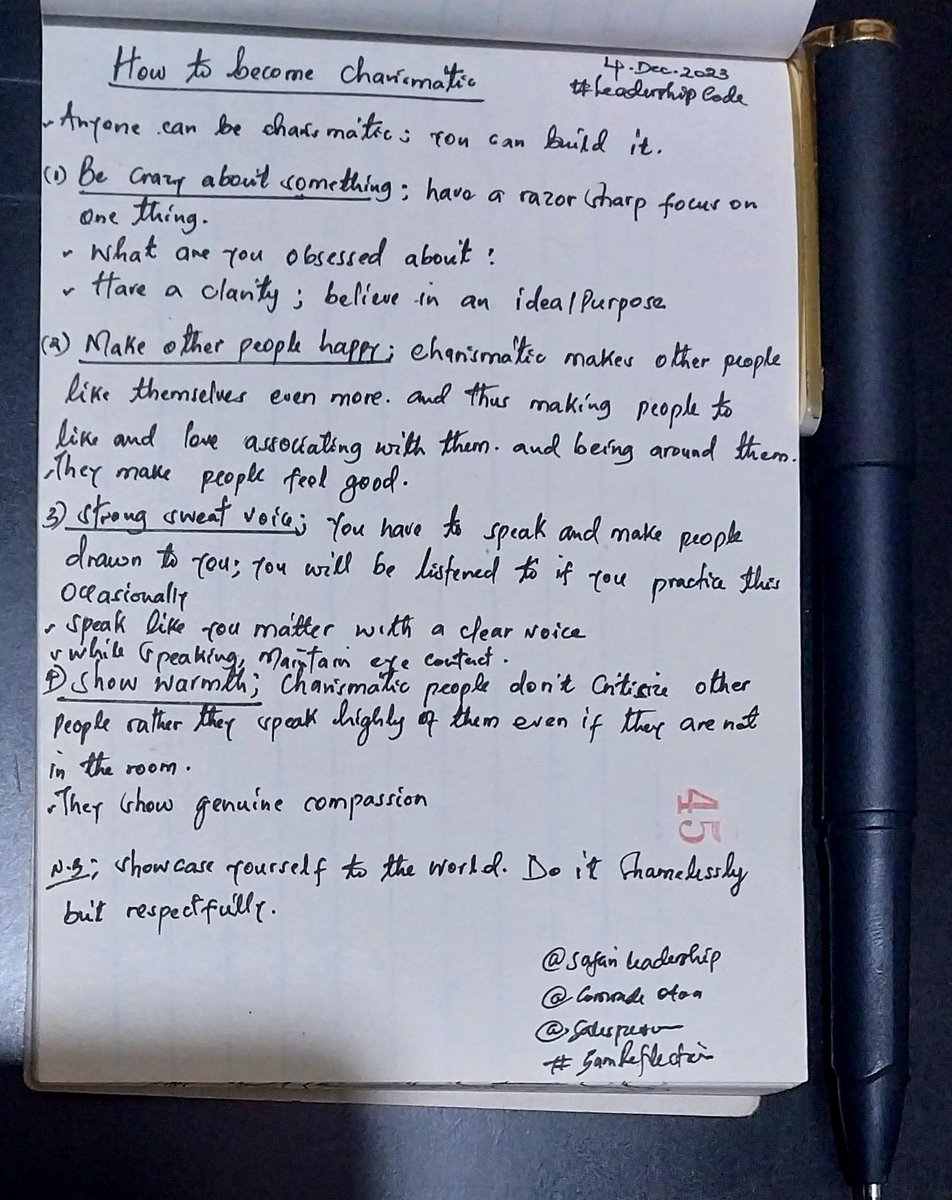 How to become charismatic
4.Dec.2023
#LeadershipCode
- Anyone can be charismatic; You can build it.
(1) Be crazy about something; have a razor sharp focus on
one thing.
- What are you obsessed about?
- Have a clarity; believe in an idea/Purpose
(2) Make other people happy; charismatic makes other people
like themselves even more. and thus making people to
like and love associating with them. and being around them.
- They make people feel good.
3) Strong sweat voice; You have to speak and make people
drawn to you; you will be listened to if you practice this
occasionally
- Speak like you matter with a clear voice
- while speaking, Maintain eye contact.
4) Show warmth; Charismatic people don't Criticize other
people rather they speak highly of them even if they are not
in the room.
- They show genuine compassion
N.B; Showcase yourself to the world. Do it Shamelessly
but respectfully.
45
@Safari Leadership
@Comrade
@Salesperson
#SamReflection